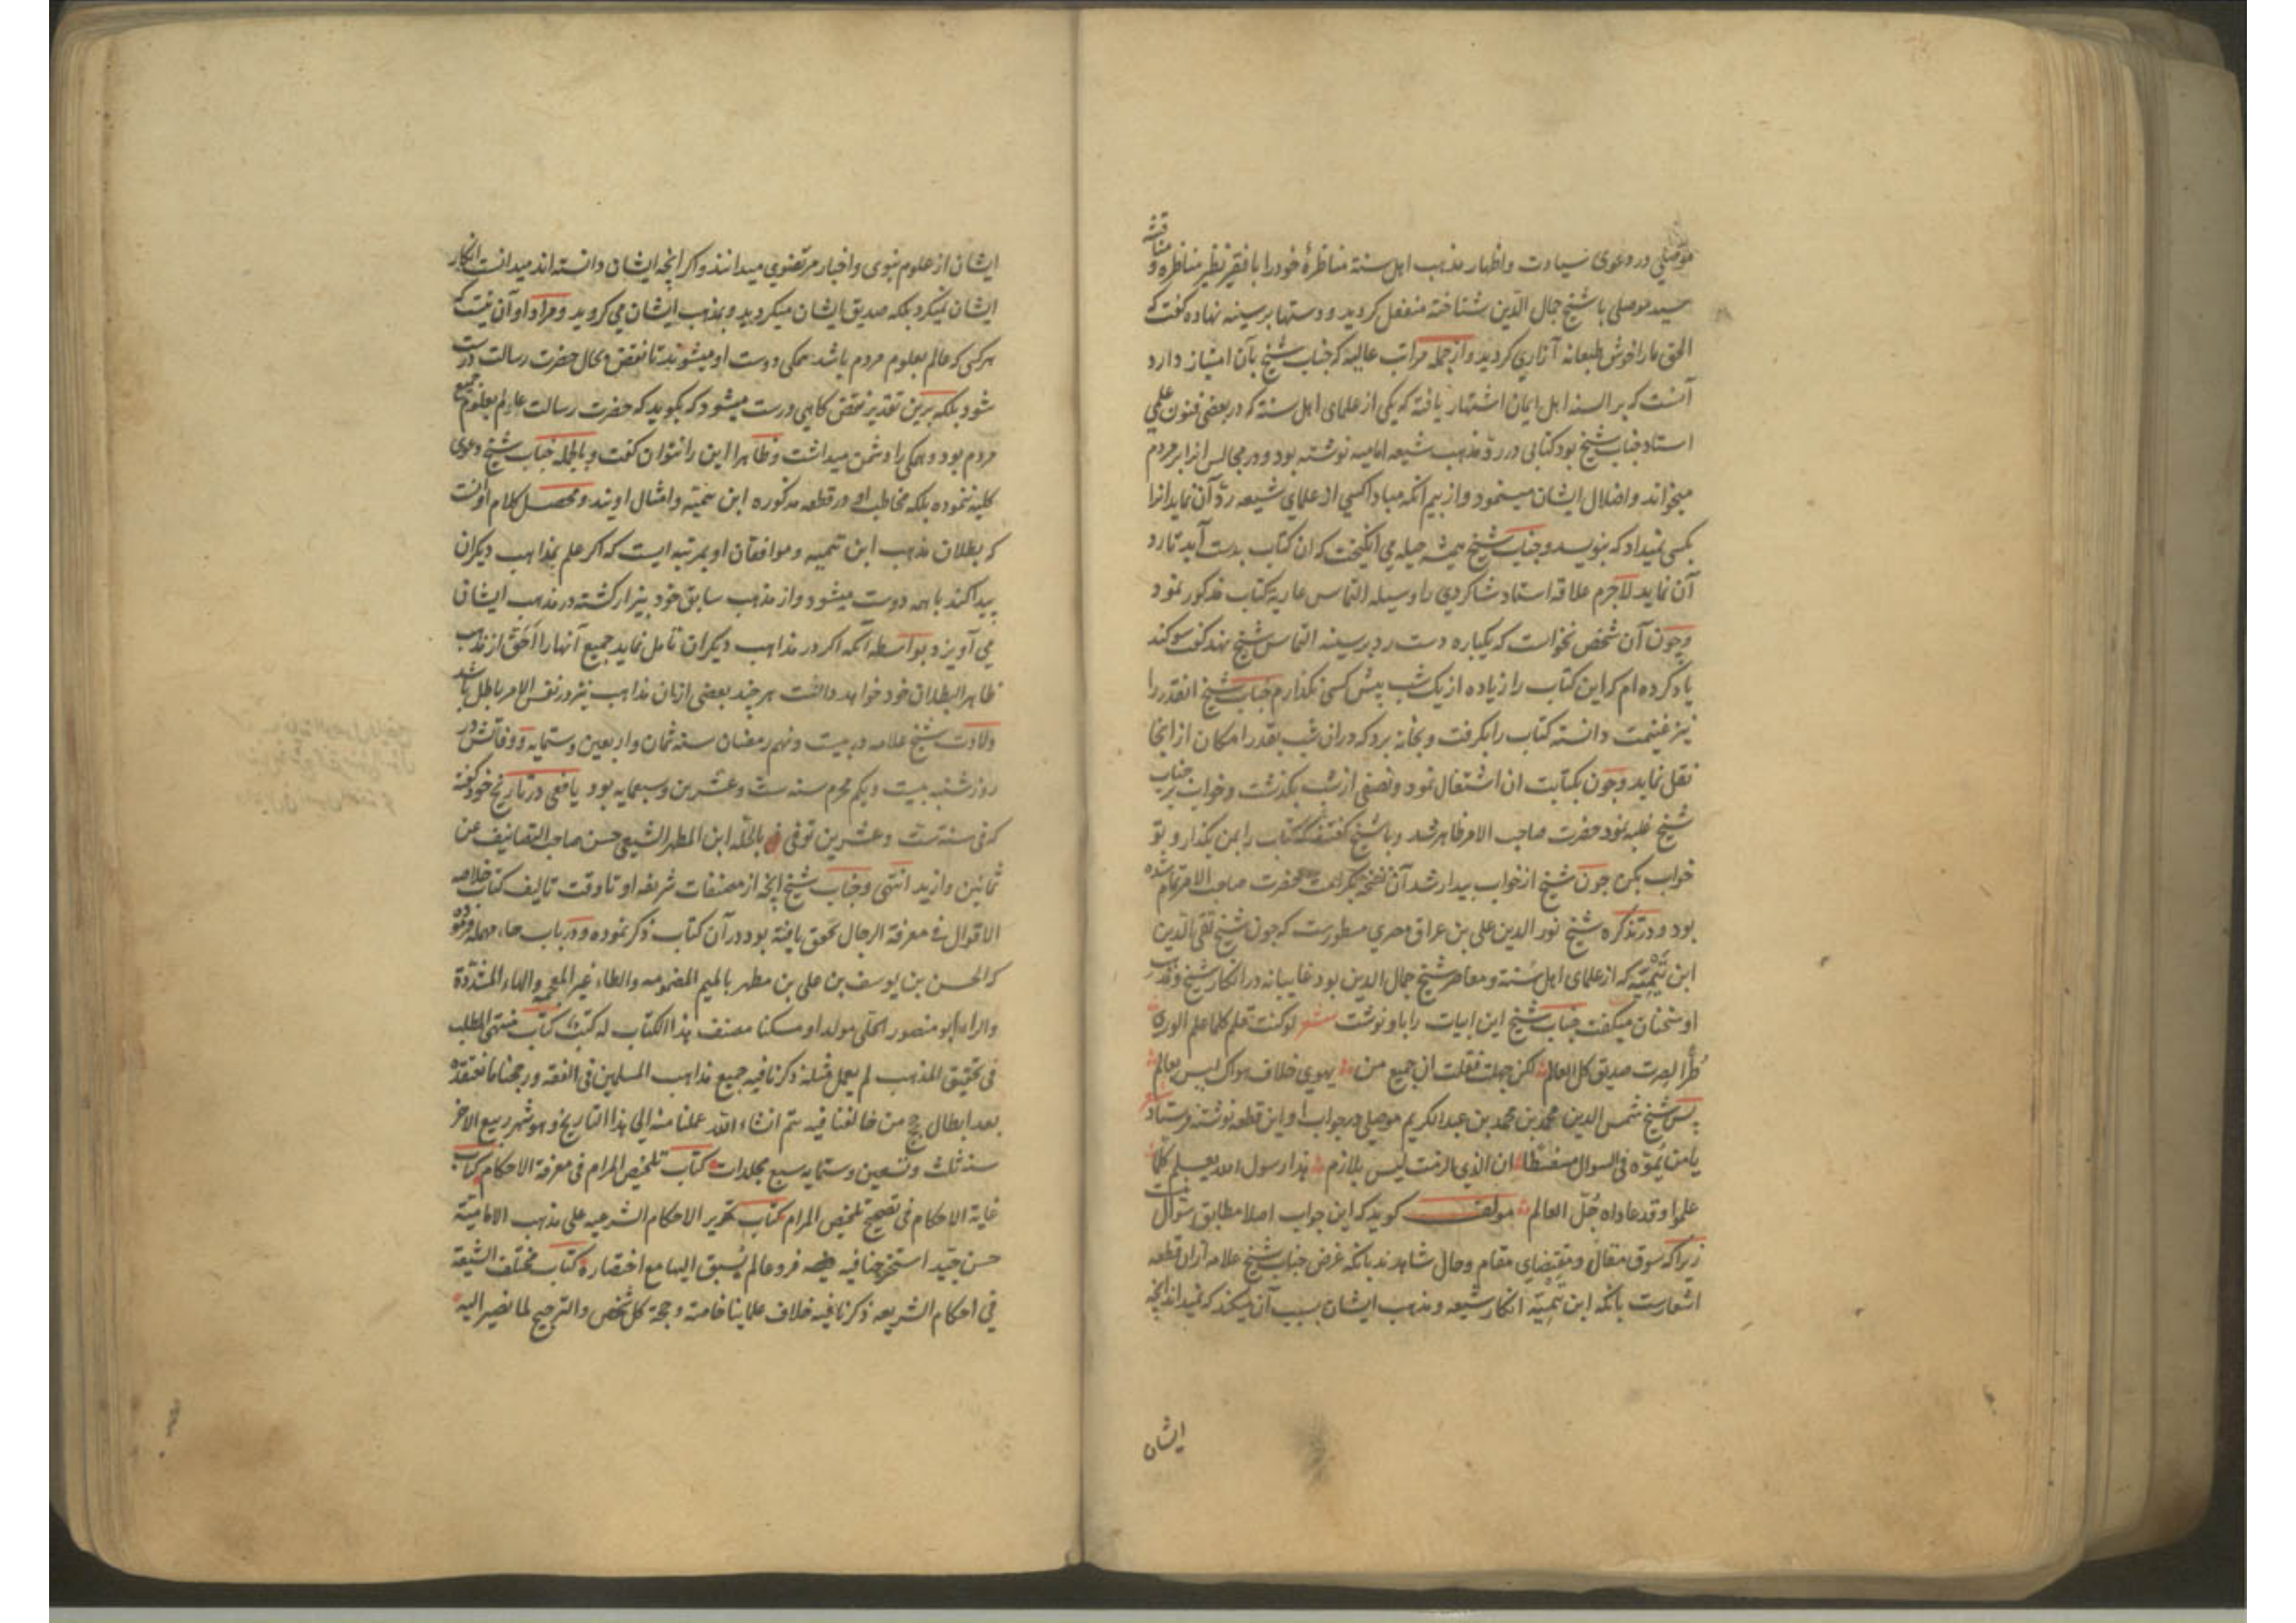 موصلی در دعوی سیادت و اظهار مذهب اهل سنة مناظرهٔ خود را با فقیر نظیر مناظره و مناقشه
سید موصلی با شیخ جمال الدین شناخته منفعل کردید و دستها بر سینه نهاده کفت که
الحق ما را خوش طبعانه آزاری کردید و از جمله مراتب عالیه که جناب شیخ بآن امتیاز دارد
آنست که بر السنه اهل ایمان اشتهار یافته که یکی از علمای اهل سنة که در بعضی فنون علمی
استاد جناب شیخ بود کتابی در رد مذهب شیعه امامیه نوشته بود و در مجالس انرا بر مردم
میخواند و اضلال ایشان مینمود و از بیم آنکه مبادا کسی از علمای شیعه رد آن نماید انرا
بکسی نمیداد که بنویسد و جناب شیخ همیشه حیله می انکیخت که ان کتاب بدست آید تا رد
آن نماید لاجرم علاقه استاد شاکردی را وسیله التماس عاریة کتاب مذکور نمود
و چون آن شخص نخواست که یکباره دست رد بر سینه التماس شیخ نهد کفت سوکند
یاد کرده ام که این کتاب را زیاده از یک شب پیش کسی نکذارم جناب شیخ انقدر را
نیز غنیمت دانسته کتاب را بکرفت و بخانه برد که دران شب بقدر امکان از انجا
نقل نماید و چون بکتابت ان اشتغال نمود و نصفی از شب بکذشت و خواب بر جناب
شیخ غلبه نمود حضرت صاحب الامر ظاهر شد و با شیخ کفتند که کتاب را بمن بکذار و تو
خواب بکن چون شیخ از خواب بیدار شد آن نسخه بکرامت حضرت صاحب الامر تمام شده
بود و در تذکره شیخ نور الدین علی بن عراق مصری مسطورست که چون شیخ تقی الدین
ابن تیمیه که از علمای اهل سنة و معاصر شیخ جمال الدین بود غایبانه در انکار شیخ و مذهب
او سخنان میکفت جناب شیخ این ابیات را باو نوشت شعر لو کنت تعلم کلما علم الوری
طرا لصرت صدیق کل العالم لکن جهلت فقلت ان جمیع من یهوی خلاف هواک لیس بعالم
پس شیخ شمس الدین محمد بن محمد بن عبدالکریم موصلی در جواب او این قطعه نوشته فرستاد شعر
یا من یموه فی السوال مسفسطا ان الذی الزمت لیس بلازم هذا رسول الله یعلم کلما
علموا و قد عاداه جل العالم مولف کوید که این جواب اصلا مطابق سؤال نیست
زیرا که سوق مقال و مقتضای مقام و حال شاهدند بانکه غرض جناب شیخ علامه ازان قطعه
اشعارست بانکه ابن تیمیه انکار شیعه و مذهب ایشان بسبب آن میکند که نمیداند انچه
ایشان
ایشان از علوم نبوی و اخبار مرتضوی میدانند و اکر انچه ایشان دانسته اند میدانست انکار
ایشان نمیکرد بلکه صدیق ایشان میکردید و بمذهب ایشان می کروید و مراد او آن نیست که
هر کسی که عالم بعلوم مردم باشد همکی دوست او میشوند تا نقض بحال حضرت رسالت درست
شود بلکه برین تقدیر نقض کاهی درست میشود که بکوید که حضرت رسالت عالم بعلوم جمیع
مردم بود و همکی را دشمن میداشت و ظاهرا این را نتوان کفت و بالجمله جناب شیخ دعوی
کلیه ننموده بلکه مخاطب او در قطعه مذکوره ابن تیمیه و امثال اویند و محصل کلام اوانست
که بطلان مذهب ابن تیمیه و موافقان او بمرتبه ایست که اکر علم بمذاهب دیکران
پیدا کند با همه دوست میشود و از مذهب سابق خود بیزار کشته در مذهب ایشان
می آویزد بواسطه آنکه اکر در مذاهب دیکران تامل نماید جمیع آنها را احق از مذهب
ظاهر البطلان خود خواهد دانست هر چند بعضی ازان مذاهب نیز در نفس الامر باطل باشد
ولادت شیخ علامه در بیست و نهم رمضان سنه ثمان و اربعین و ستمایه و وفاتش در
روز شنبه بیست و یکم محرم سنه ست و عشرین و سبعمایه بود یافعی در تاریخ خود کفته
که فی سنه ست و عشرین توفی بالحلة ابن المطهر الشیعی حسن صاحب التصانیف عن
ثمانین و ازید انتهی و جناب شیخ انچه از مصنفات شریفه او تا وقت تالیف کتاب خلاصه
الاقوال فی معرفة الرجال تحقق یافته بود در آن کتاب ذکر نموده و در باب حاء مهمله فرموده
که الحسن بن یوسف بن علی بن مطهر بالمیم المضمومه و الطاء غیر المعجمه و الهاء المشددة
و الراء ابو منصور الحلی مولدا و مسکنا مصنف هذا الکتاب له کتب کتاب منتهی المطلب
فی تحقیق المذهب لم یعمل مثله ذکرنا فیه جمیع مذاهب المسلمین فی الفقه و رجحنا ما نعتقده
بعد ابطال حجج من خالفنا فیه یتم انشاء الله عملنا منه الی هذا التاریخ و هو شهر ربیع الاخر
سنه ثلث و تسعین و ستمایه سبع مجلدات کتاب تلخیص المرام فی معرفة الاحکام کتاب
غایة الاحکام فی تصحیح تلخیص المرام کتاب تحریر الاحکام الشرعیه علی مذهب الامامیة
حسن جید استخرجنا فیه فروعا لم یسبق الیها مع اختصاره کتاب مختلف الشیعة
فی احکام الشریعه ذکرنا فیه خلاف علماینا خاصة و حجة کل شخص و الترجیح لما نصیر الیه